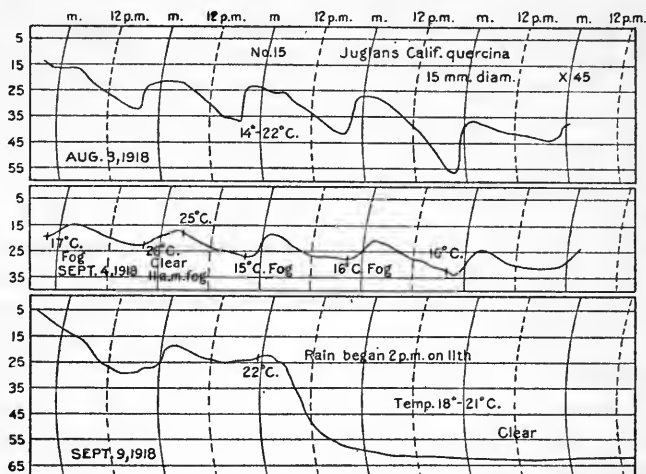 m. 12 p.m. m. 12 p.m. m. 12 p.m. m. 12 p.m. m. 12 p.m. m. 12 p.m.
5
15
25
35
45
55
No.15 Juglans Calif. quercina
15 mm. diam. X 45
14°-22°C.
AUG. 3, 1918
5
15
25
35
25°C.
17°C.
Fog
Clear
11 a.m. fog
15°C. Fog
16°C. Fog
SEPT. 4, 1918
5
15
25
35
45
55
65
Rain began 2 p.m. on 11th
22°C.
Temp. 18°-21°C.
Clear
SEPT. 9, 1918